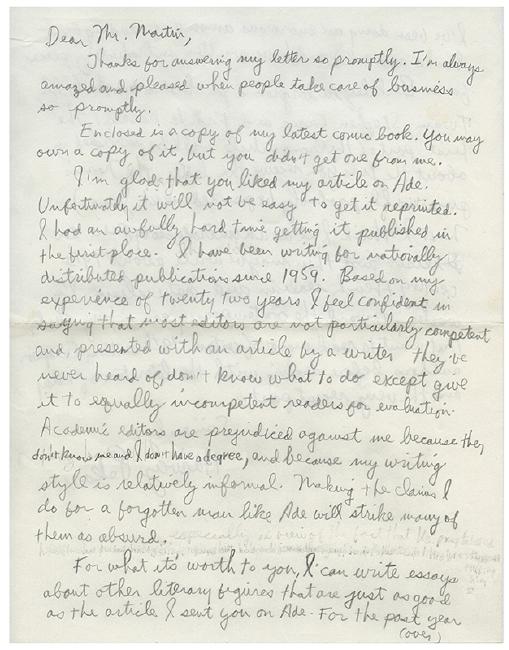 Dear Mr. Martin,
Thanks for answering my letter so promptly. I'm always
amazed and pleased when people take care of business
so promptly.
Enclosed is a copy of my latest comic book. You may
own a copy of it, but you didn't get one from me.
I'm glad that you liked my article on Ade.
Unfortunately it will not be easy to get it reprinted.
I had an awfully hard time getting it published in
the first place. I have been writing for nationally
distributed publications since 1959. Based on my
experience of twenty two years I feel confident in
saying that most editors are not particularly competent
and, presented with an article by a writer they've
never heard of, don't know what to do except give
it to equally incompetent readers for evaluation.
Academic editors are prejudiced against me because they
don't know me and I don't have a degree, and because my writing
style is relatively informal. Making the claims I
do for a forgotten man like Ade will strike many of
them as absurd. especially in view of the fact that
For what it's worth to you, I can write essays
about other literary figures that are just as good
as the article I sent you on Ade. For the past year
(over)